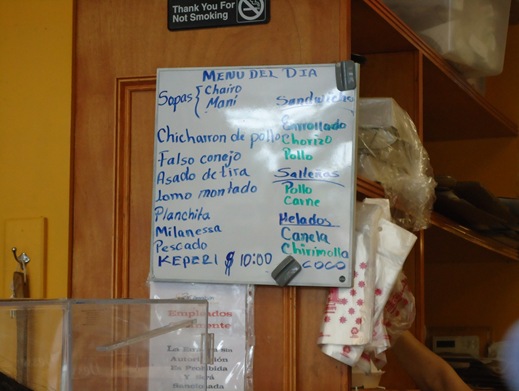 Thank You For
Not Smoking
MENU DEL DIA
Sopas { Chairo
Mani
Chicharron de pollo
Falso conejo
Asado de tira
Lomo montado
Planchita
Milanessa
Pescado
KEPERI $ 10:00
Sandwiche
Enrollado
Chorizo
Pollo
Salteñas
Pollo
Carne
Helados
Canela
Chirimolla
COCO
Empleados